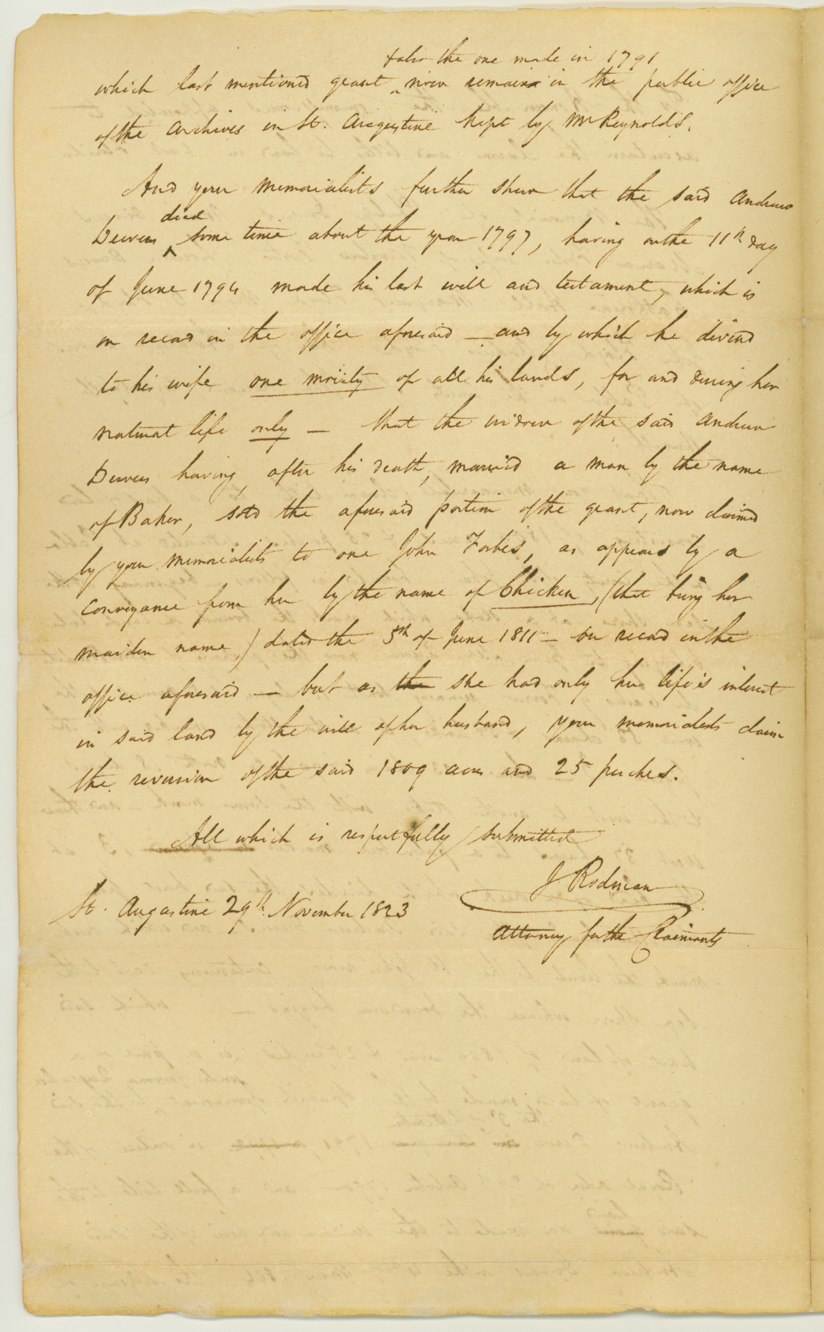 & also the one made in 1791
which last mentioned grant ^ now remains in the public office
of the archives in St. Augustine kept by Mr Reynolds.
And your memorialists further shew that the said Andrew
died
Dewees ^ some time about the year 1797, having on the 11th day
of June 1794 made his last will and testament, which is
on record in the office aforesaid — and by which he divised
to his wife one moiety of all his lands, for and during her
natural life only — that the widow of the said Andrew
Dewees having, after his death, married a man by the name
of Baker, sold the aforesaid portion of the grant, now claimed
by your memorialists to one John Forbes, as appears by a
conveyance from her by the name of Chicken, (that being her
maiden name,) dated the 5th of June 1811 — on record in the
office aforesaid — but as the she had only her life's interest
in said land by the will of her husband, your memorialists claim
the reversion of the said 1809 acres and 25 perches.
All which is respectfully submitted
J Rodman
St. Augustine 29th November 1823
Attorney for the Claimants